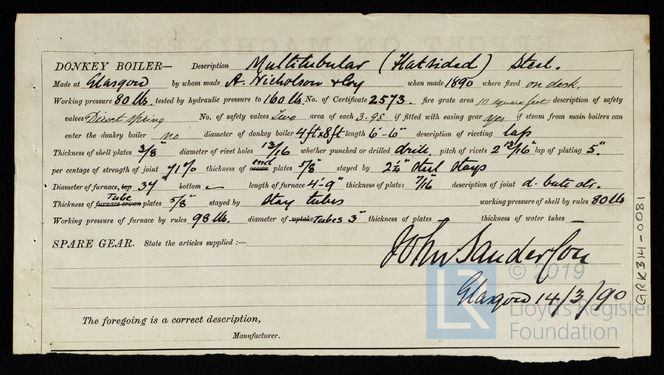 DONKEY BOILER— Description Multitubular (Flatsided) Steel.
Made at Glasgow by whom made A. Nicholson & Coy when made 1890 where fixed on deck.
Working pressure 80 lb. tested by hydraulic pressure to 160 lb. No. of Certificate 2573. fire grate area 10 square feet description of safety
valves Direct Spring No. of safety valves Two area of each 3.98 if fitted with easing gear yes if steam from main boilers can
enter the donkey boiler no diameter of donkey boiler 4ft x 8ft length 6'-6" description of riveting lap
Thickness of shell plates 3/8" diameter of rivet holes 13/16" whether punched or drilled drill. pitch of rivets 2 13/16" lap of plating 5".
per centage of strength of joint 71% thickness of end plates 5/8" stayed by 2¼" Steel Stays
Diameter of furnace, top 34" bottom — length of furnace 4'-9" thickness of plates 7/16" description of joint d. butt str.
Thickness of furnace crown Tube plates 5/8" stayed by Stay tubes working pressure of shell by rules 80 lb
Working pressure of furnace by rules 98 lb. diameter of uptake tubes 3" thickness of plates — thickness of water tubes —
SPARE GEAR. State the articles supplied:—
John Sanderson
Glasgow 14/3/90
The foregoing is a correct description,
Manufacturer.
GRK314-0081
© 2019
LR
Lloyd's Register
Foundation